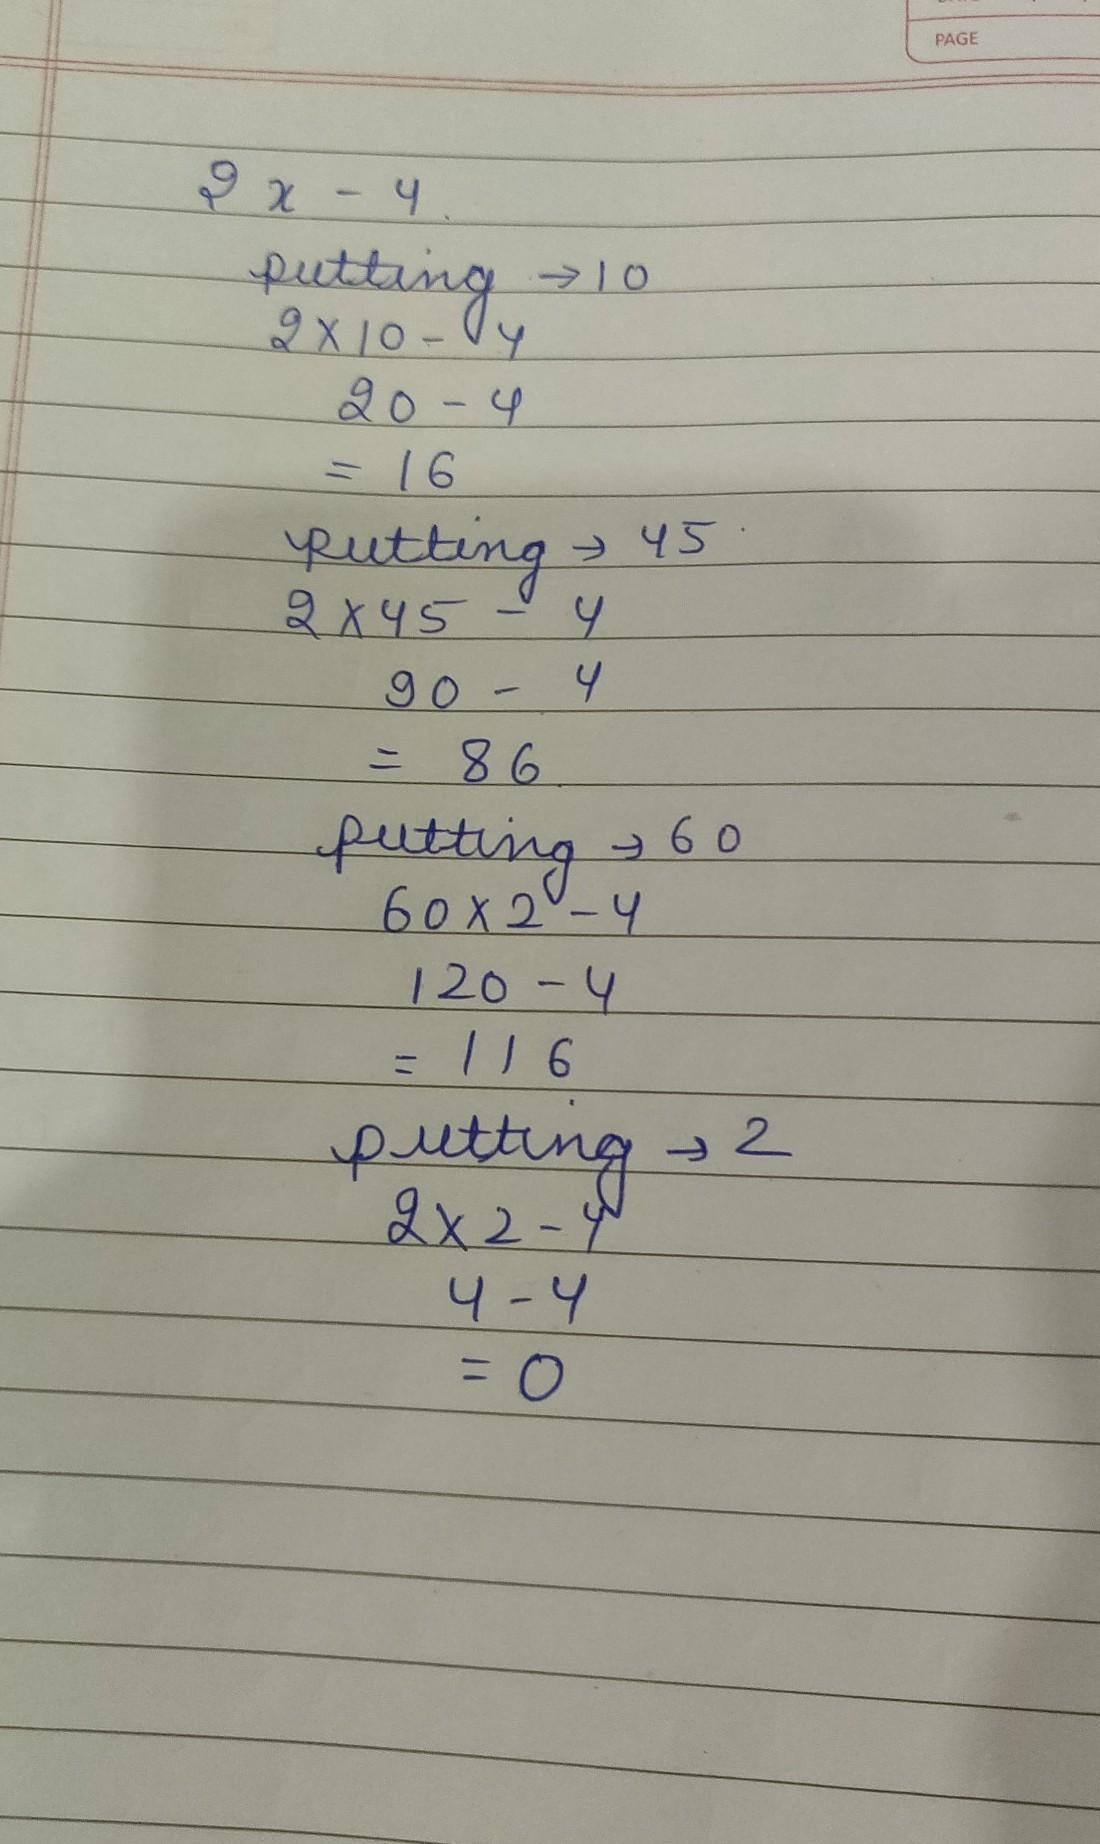 PAGE
2x - 4
putting → 10
2×10 - 4
20 - 4
= 16
putting → 45
2×45 - 4
90 - 4
= 86
putting → 60
60×2 - 4
120 - 4
= 116
putting → 2
2×2 - 4
4 - 4
= 0